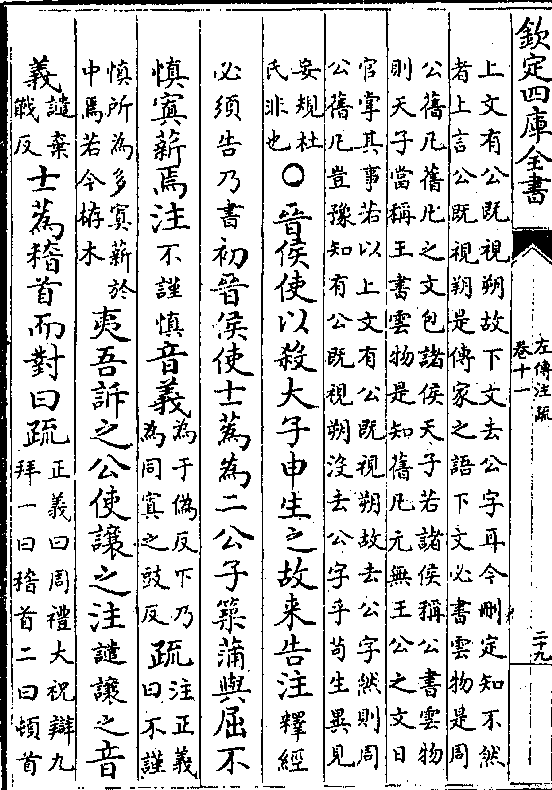 欽定四庫全書
左傳注疏
卷十一
二十九
上文有公既視朔故下文去公字耳今刪定知不然
者上言公既視朔是傳家之語下文必書雲物是周
公舊凡舊凡之文包諸侯天子若諸侯稱公書雲物
則天子當稱王書雲物是知舊凡元無王公之文日
官掌其事若以上文有公既視朔故去公字然則周
公舊凡豈豫知有公既視朔沒去公字乎苟生異見
妄規杜
氏非也
○晉侯使以殺大子申生之故来告注
釋經
必須告乃書
初晉侯使士蔿為二公子築蒲與屈不
慎寘薪焉注
不謹慎
音義
為于偽反下乃
為同寘之豉反
疏
注正義
曰不謹
慎所為多寘薪於
中焉若今椓木
夷吾訴之公使讓之注
譴讓之
音
義
譴棄
戰反
士蔿稽首而對曰疏
正義曰周禮大祝辯九
拜一曰稽首二曰頓首